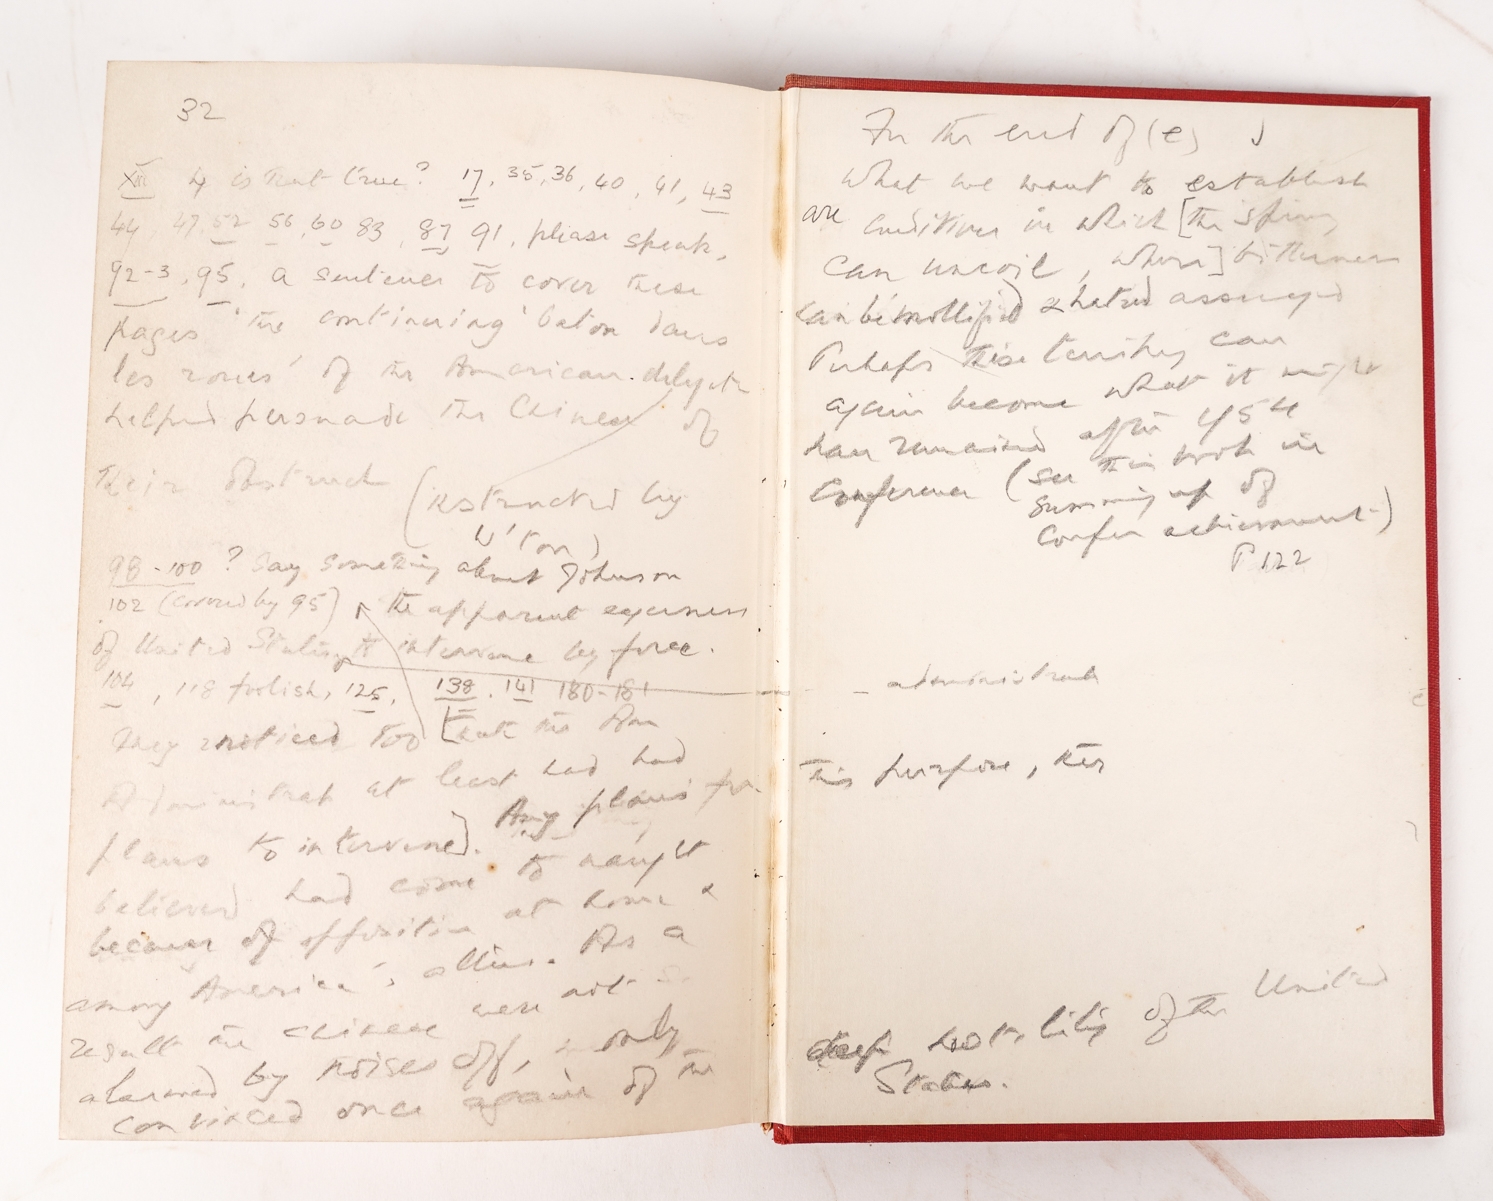 32
XIII 4 is that true? 17, 35, 36, 40, 41, 43
44, 47, 52 56, 60 83, 87 91, please speak,
92-3, 95. A sentence to cover these
pages 'the continuing' baton dans
les roues' of the American delegate
helped persuade the Chinese of
their obstruct (instructed by
W'ton)
98-100? Say something about Johnson
102 (covered by 95) the apparent eagerness
of United States to intervene by force.
104, 118 foolish, 125, 138, 141 180-181
They noticed too [that the Am
Administrat at least had had
plans to intervene]. Any plans for
believed had come to naught
because of opposition at home &
among America's allies. As a
result the Chinese were not
alarmed by noises off, only
convinced once again of the
For the end of (e)
What we want to establish
are conditions in which [the spring
can uncoil, where] bitterness
can be mollified & hatred assuaged
Perhaps this territory can
again become what it might
have remained after 1954
Conference (see this book in
Summing up of
Confer achievement)
P 122
administrat
this purpose, the
deep hostility of the United
States.